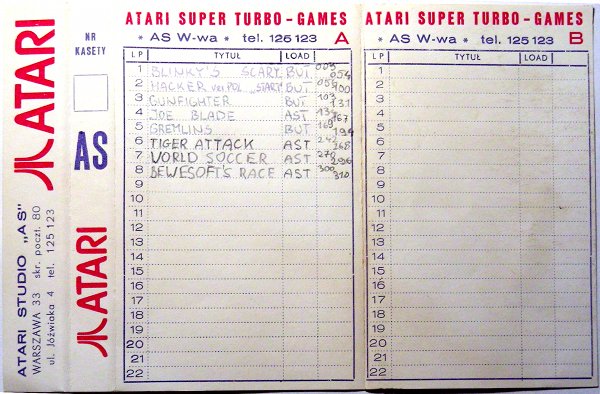 ATARI STUDIO „AS"
WARSZAWA 33 skr. poczt. 80
ul. Jóźwiaka 4 tel. 125 123
ATARI
NR
KASETY
AS
ATARI
ATARI SUPER TURBO - GAMES
* AS W-wa * tel. 125123 A
LP TYTUŁ LOAD
1 BLINKY'S SCARY BUT 005 054
2 HACKER ver POL „START BUT 055 100
3 GUNFIGHTER BUT 103 131
4 JOE BLADE AST 167
5 GREMLINS BUT 169 194
6 TIGER ATTACK AST 268
7 VORLD SOCCER AST 270 296
8 BEWESOFT'S RACE AST 300 310
9
10
11
12
13
14
15
16
17
18
19
20
21
22
ATARI SUPER TURBO - GAMES
* AS W-wa * tel. 125123 B
LP TYTUŁ LOAD
1
2
3
4
5
6
7
8
9
10
11
12
13
14
15
16
17
18
19
20
21
22